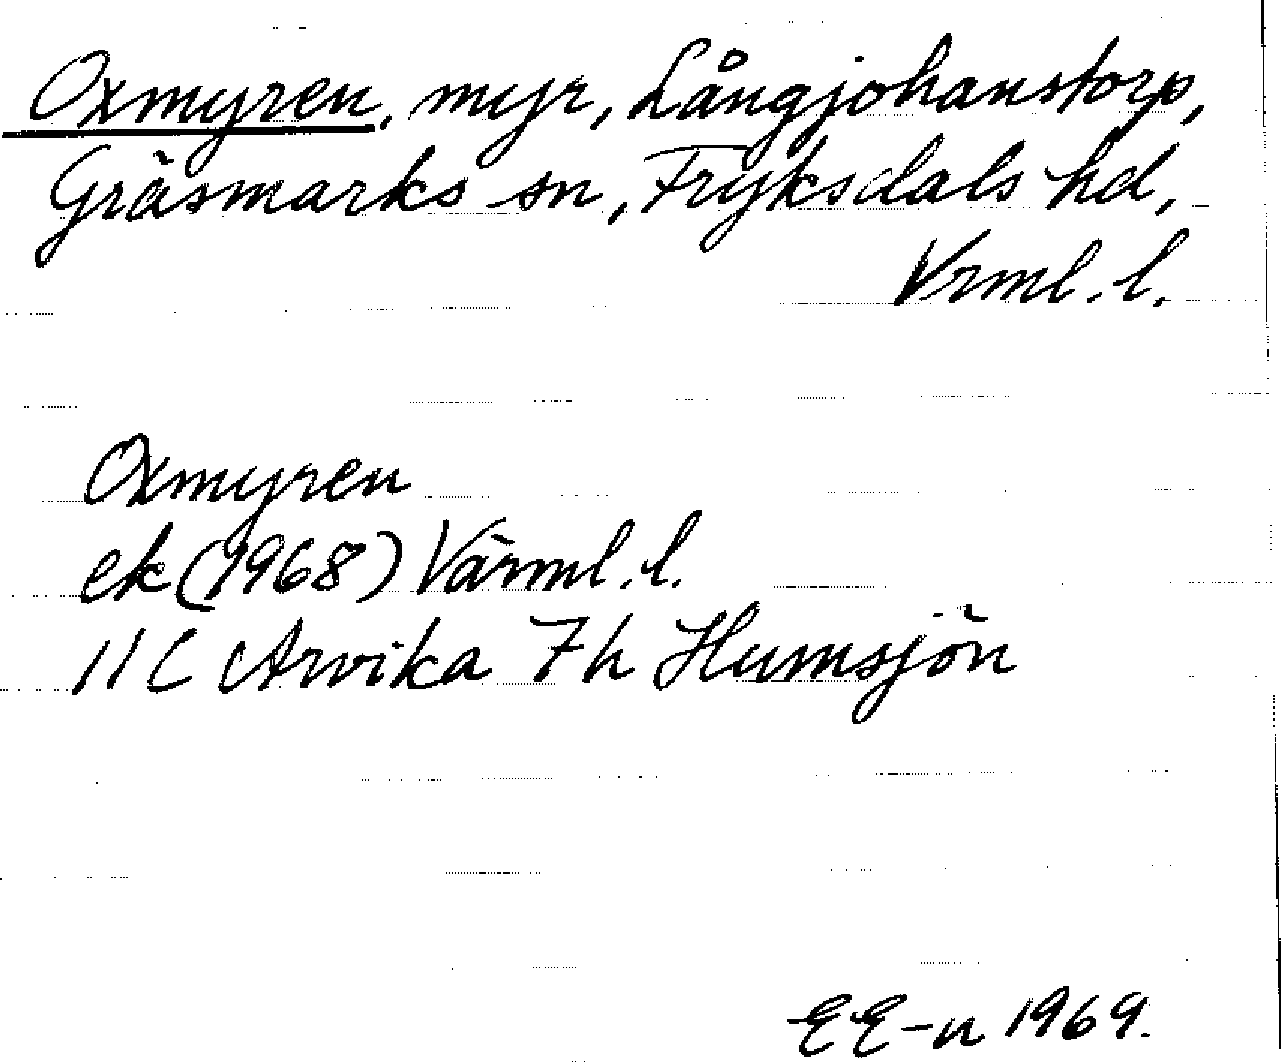 Oxmyren, myr, Långjohanstorp,
Gräsmarks sn, Fryksdals hd,
Vrml. l.
Oxmyren
ek (1968) Värml. l.
11C Arvika 7h Humsjön
EE-n 1969.